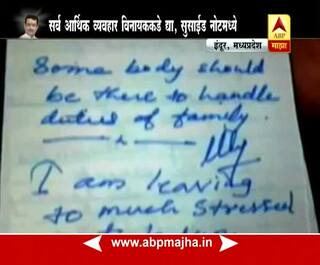 सर्व आर्थिक व्यवहार विनायककडे द्या, सुसाईड नोटमध्ये
abp
माझा
इंदूर, मध्यप्रदेश
Some body should
be there to handle
duties of family.
I am leaving
too much stressed
www.abpmajha.in